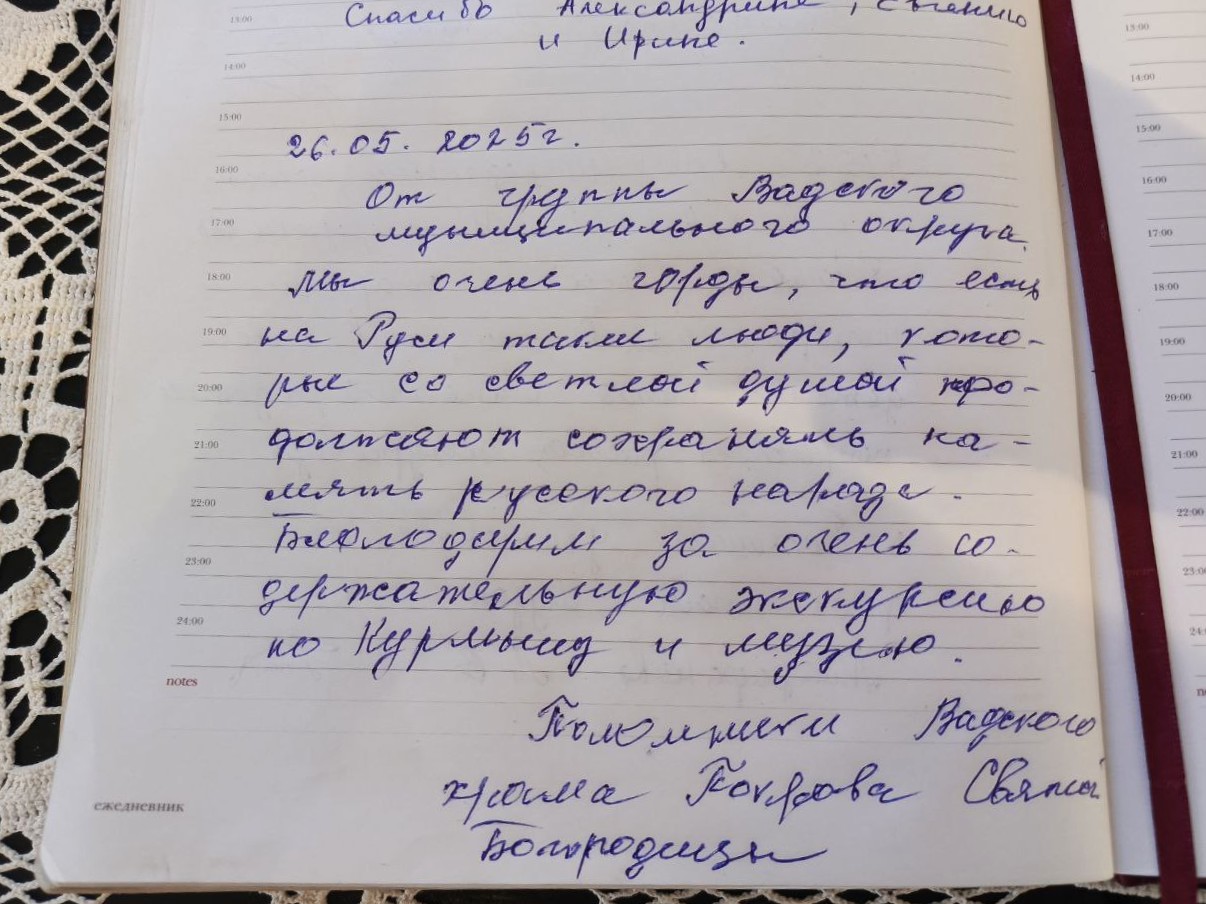 13:00 Спасибо Александрине, Евгению
и Ирине.
14:00
15:00
26.05.2025г.
16:00
От группы Вадского
17:00 муниципального округа.
18:00 Мы очень горды, что есть
19:00 на Руси такие люди, кото-
20:00 рые со светлой душой про-
21:00 должают сохранять па-
22:00 мять русского народа.
Благодарим за очень со-
23:00 держательную экскурсию
24:00 по Курмышу и музею.
notes
Паломники Вадского
храма Покрова Святой
ежедневник
Богородицы
13:00
14:00
15:00
16:00
17:00
18:00
19:00
20:00
21:00
22:00
23:00
24:00